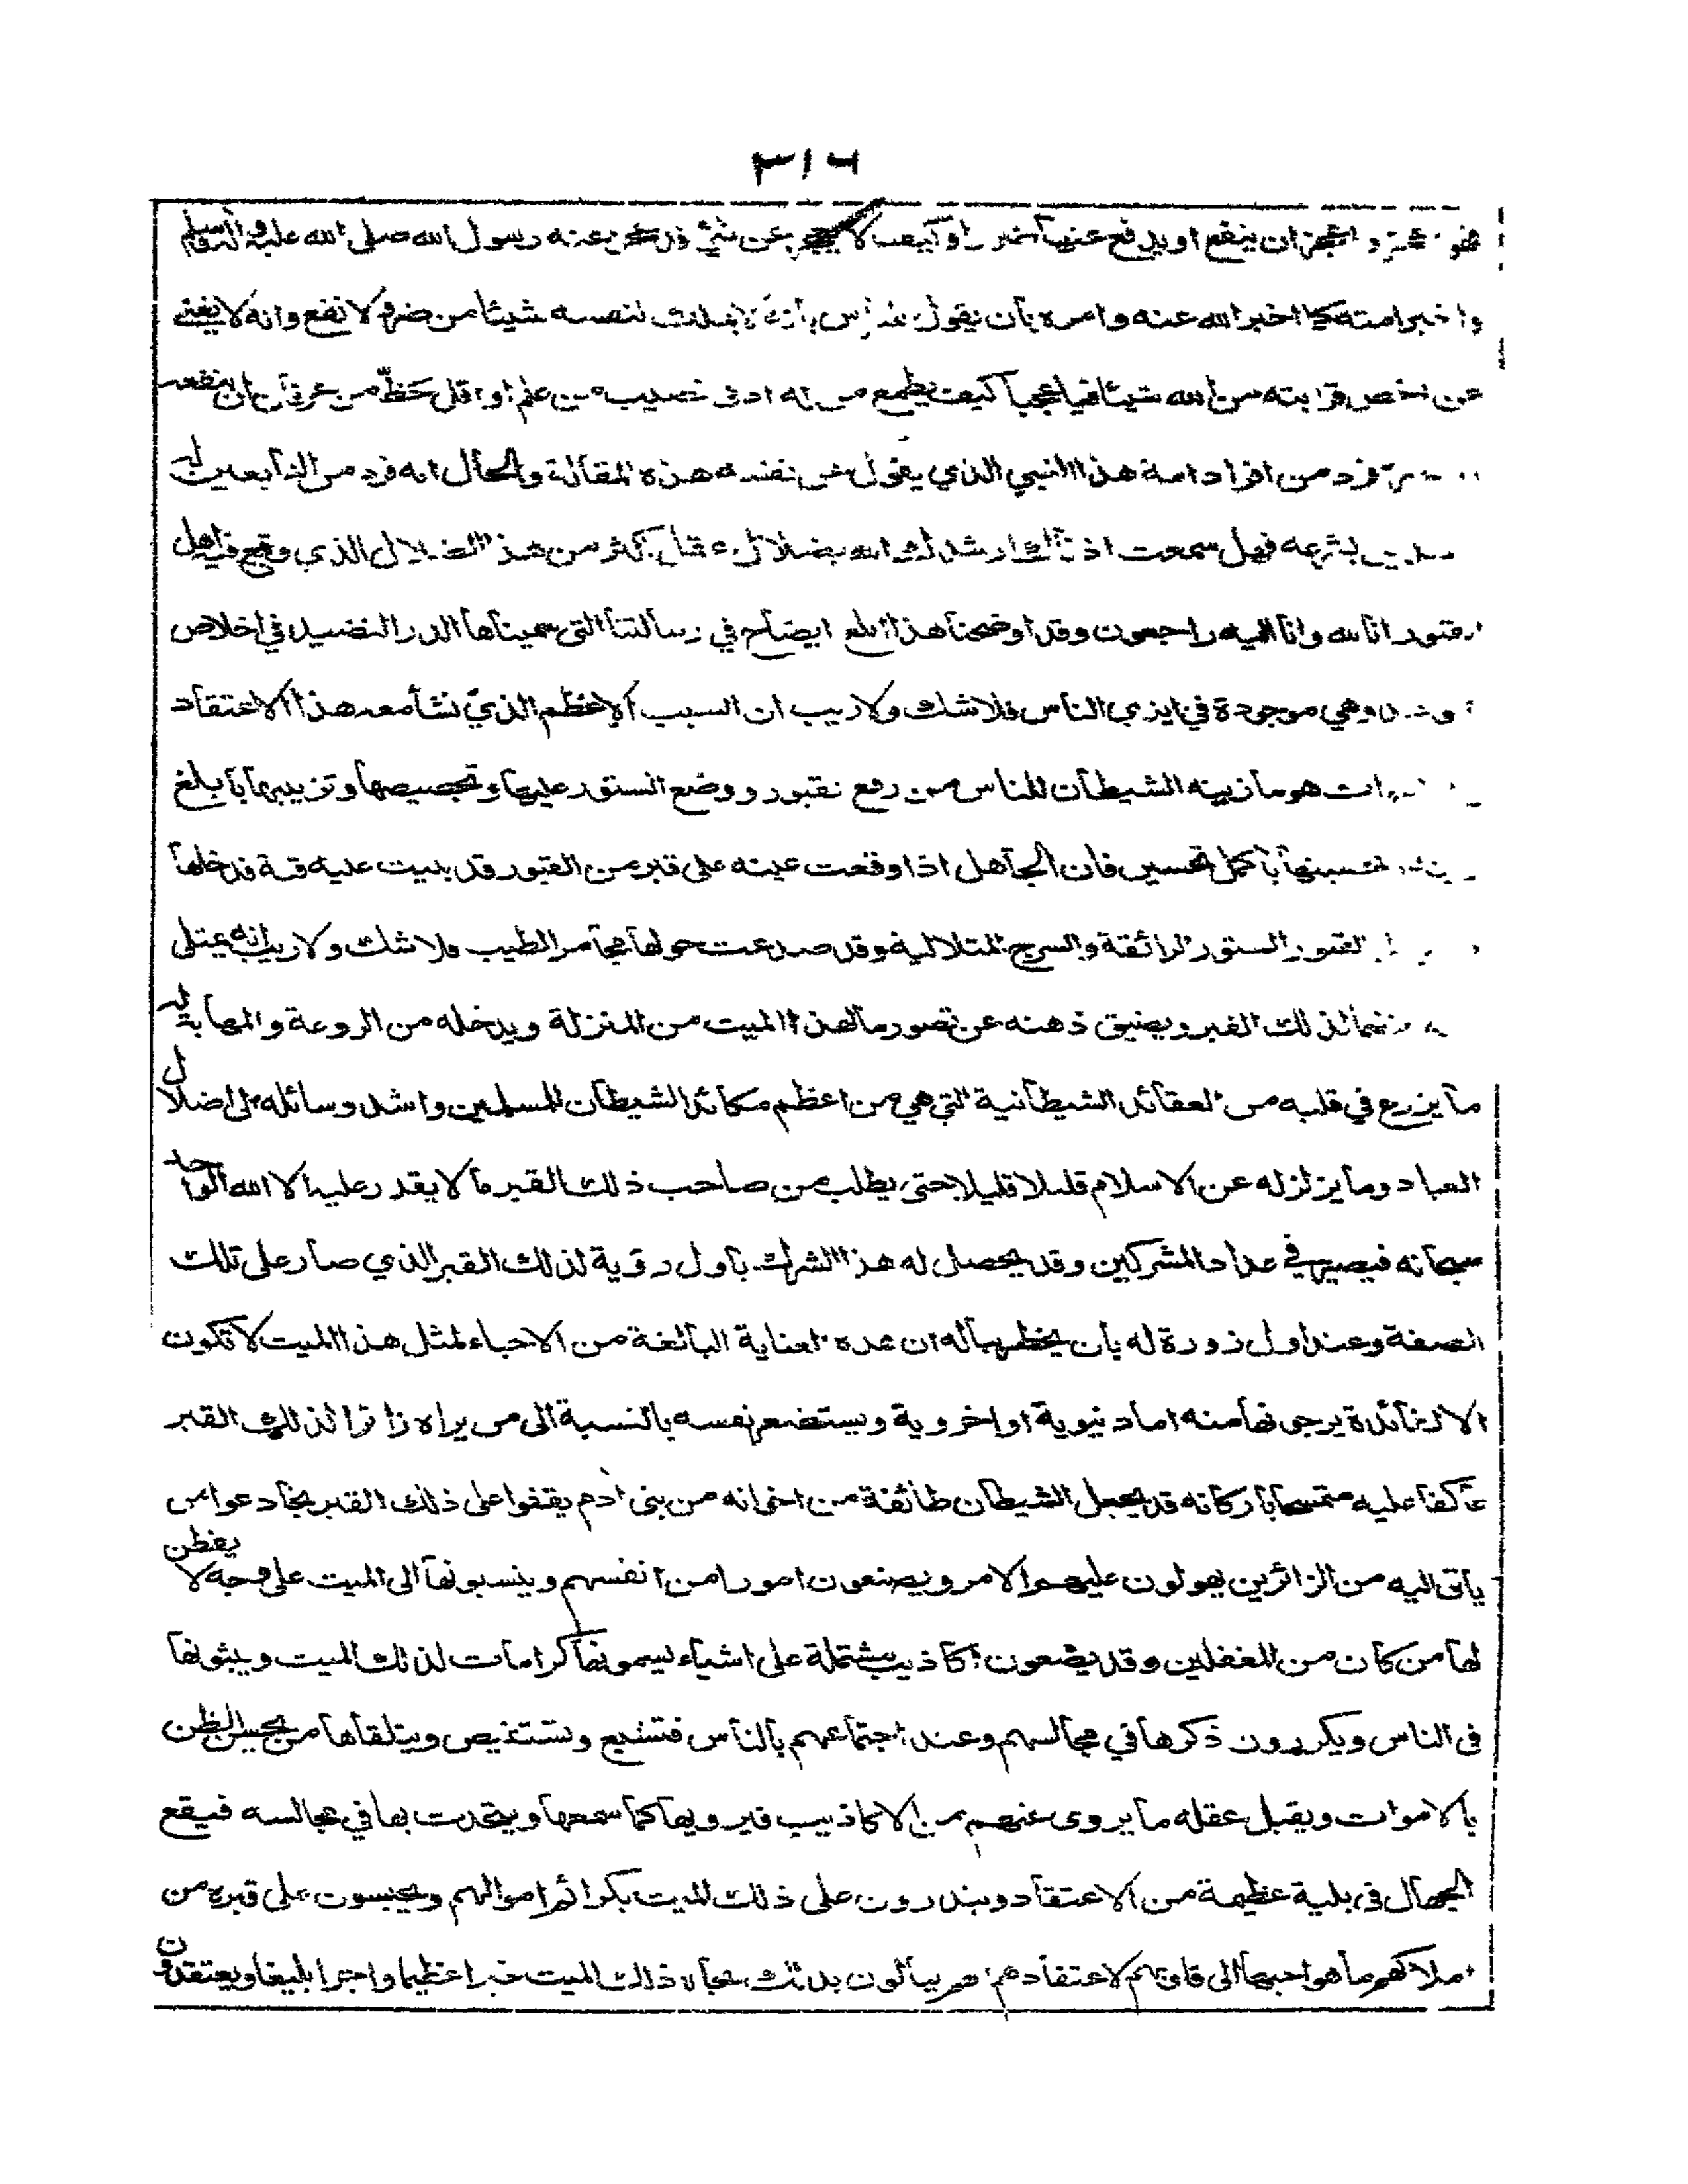 ٣١٦
ان ينفع او يدفع عنها ضررا وكيف لا يعجز عن شئ قد عجز عنه رسول الله صلى الله عليه وآله وسلم
واخبر امته كما اخبر الله عنه وامره بأن يقول للناس بأنه لا يملك لنفسه شيئا من ضر ولا نفع وانه لا يغنى
عن اخص قرابته من الله شيئا فيا عجبا كيف يطمع من له ادنى نصيب من علم او اقل حظّ من عرفان ان ينفعه
فرد من افراد امة هذا النبي الذي يقول عن نفسه هذه المقالة والحال انه فرد من التابعين له
بشرعه فهل سمعت اذناك ارشدك الله بضلال عقل اكثر من هذا الضلال الذي وقع فيه اهل
القبور انا لله وانا اليه راجعون وقد اوضحنا هذا ابلغ ايضاح في رسالتنا التى سميناها الدر النضيد في اخلاص
وهي موجودة في ايدي الناس فلا شك ولا ريب ان السبب الاعظم الذي نشأ معه هذا الاعتقاد
هو ما زينه الشيطان للناس من رفع القبور ووضع الستور عليها وتجصيصها وتزيينها بابلغ
تحسينها بأكمل تحسين فان الجاهل اذا وقعت عينه على قبر من القبور قد بنيت عليه قبة فدخلها
القبور الستور الرائقة والسرج المتلالية وقد صدعت حولها مجامر الطيب فلا شك ولا ريب انه يمتلى
لذلك القبر ويضيق ذهنه عن تصور ما لهذا الميت من المنزلة ويدخله من الروعة والمهابة
ما يزرع في قلبه من العقائد الشيطانية التي هي من اعظم مكائد الشيطان للمسلمين واشد وسائله الى اضلال
العباد وما يزلزله عن الاسلام قليلا قليلا حتى يطلب من صاحب ذلك القبر ما لا يقدر عليه الا الله الواحد
سبحانه فيصير في عداد المشركين وقد يحصل له هذا الشرك بأول رؤية لذلك القبر الذي صار على تلك
الصفة وعند اول زورة له بأن يخطر بباله ان هذه العناية البالغة من الاحياء لمثل هذا الميت لا تكون
الا لفائدة يرجى نها منه اما دنيوية او اخروية ويستضعر نفسه بالنسبة الى من يراه زائرا لذلك القبر
عاكفا عليه متمسحا بأركانه قد يجعل الشيطان طائفة من اخوانه من بنى آدم يقفوا على ذلك القبر يخادعوا من
يأتى اليه من الزائرين يهولون عليهم الامر ويصنعون امورا من انفسهم وينسبونها الى الميت على وجه لا يفطن
لها من كان من المغفلين وقد يضعون اكاذيب مشتملة على اشياء يسمونها كرامات لذلك الميت ويبثونها
فى الناس ويكررون ذكرها في مجالسهم وعند اجتماعهم بالناس فتشيع وتستفيض ويتلقاها من يحسن الظن
بالاموات ويقبل عقله ما يروى عنهم من الاكاذيب فيرويها كما سمعها ويتحدث بها في مجالسه فيقع
الجهال فى بلية عظيمة من الاعتقاد وينذرون على ذلك الميت بكرائم اموالهم ويحبسون على قبره من
املاكهم ما هو احبها الى قلوبهم لاعتقادهم انهم ينالون بذلك بجاه ذلك الميت خيرا عظيما واجرا بليغا ويعتقدون